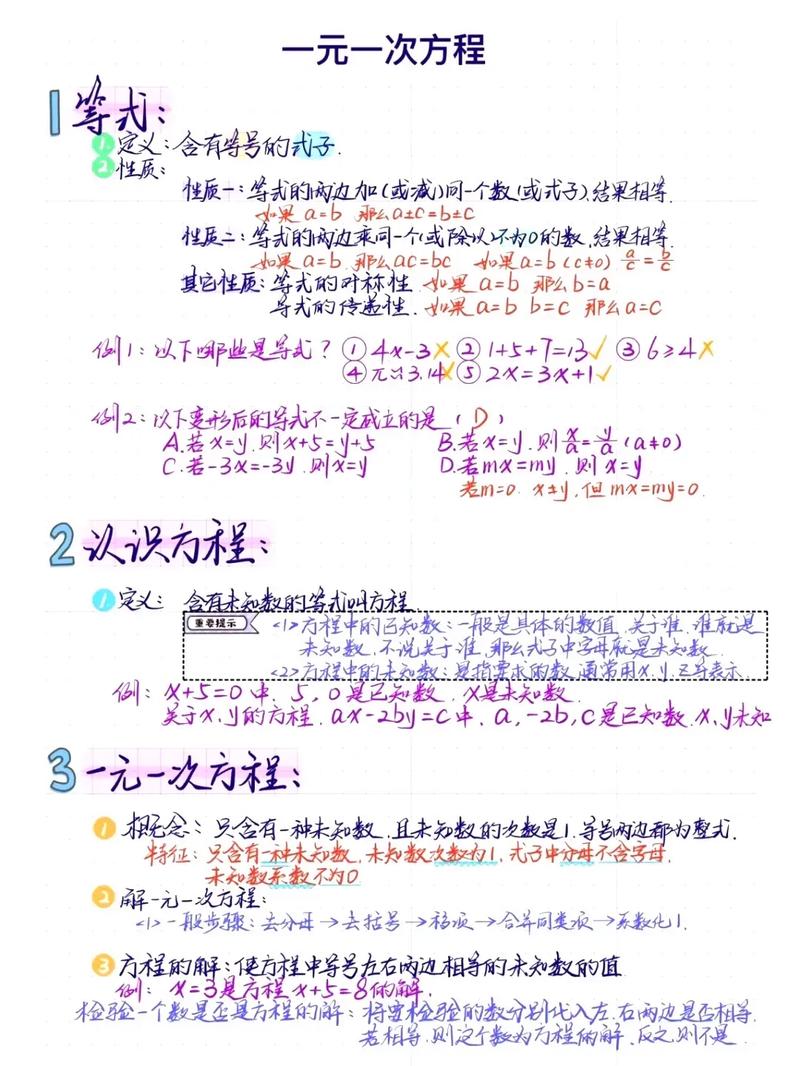 一元一次方程
1 等式：
1 定义：含有等号的式子.
2 性质：
性质一：等式的两边加(或减)同一个数(或式子).结果相等.
如果 a=b 那么a±c=b±c
性质二：等式的两边乘同一个(或除以)不为0的数.结果相等.
如果 a=b.那么ac=bc 如果a=b(c≠0) a/c=b/c
其它性质：等式的对称性.如果a=b 那么b=a
等式的传递性.如果a=b b=c 那么a=c
例1：以下哪些是等式？①4x-3× ②1+5+7=13✓ ③6≥4×
④π≈3.14× ⑤2x=3x+1✓
例2：以下变形后的等式不一定成立的是（D）
A.若x=y.则x+5=y+5 B.若x=y.则x/a=y/a(a≠0)
C.若-3x=-3y.则x=y D.若mx=my.则x=y
若m=0. x≠y,但mx=my=0.
2 认识方程：
1 定义： 含有未知数的等式叫方程
重要提示 <1>方程中的已知数：一般是具体的数值.关于谁.谁就是
未知数，不说关于谁.那么式子中字母就是未知数.
<2>方程中的未知数：是指要求的数,通常用x.y.z等表示
例：x+5=0中. 5，0是已知数.x是未知数.
关于x.y的方程.ax-2by=c中.a,-2b,c是已知数.x,y未知
3 一元一次方程：
1 概念：只含有一种未知数.且未知数的次数是1.等号两边都为整式.
特征：只含有一种未知数.未知数次数为1.式子中分母不含字母.
未知数系数不为0
2 解一元一次方程：
<1>一般步骤：去分母→去括号→移项→合并同类项→系数化1.
3 方程的解：使方程中等号左右两边相等的未知数的值
例：x=3是方程x+5=8的解.
检验一个数是否是方程的解：将要检验的数分别代入左.右两边是否相等.
若相等.则这个数为方程的解.反之则不是.